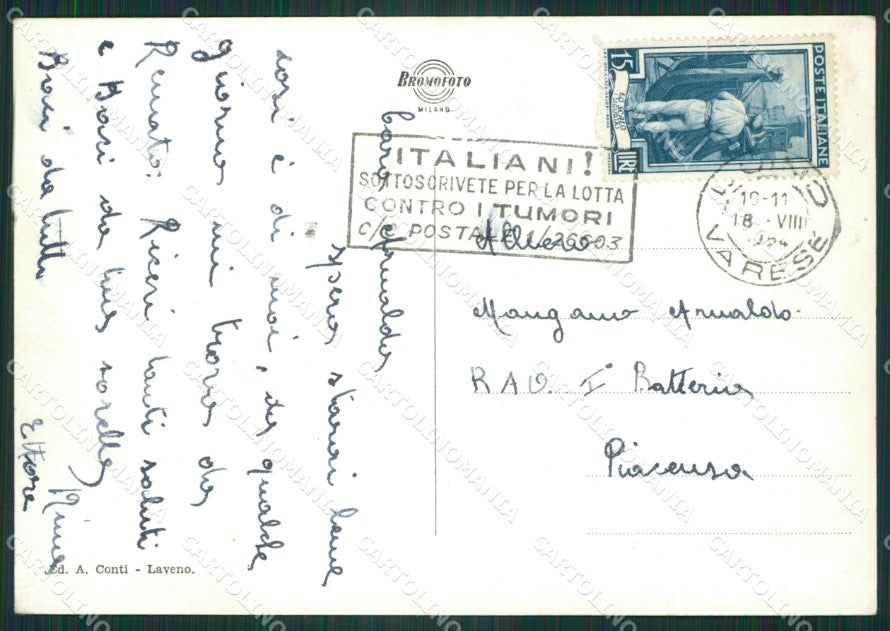 BROMOFOTO
MILANO
15
LIRE
POSTE ITALIANE
ITALIANI!
SOTTOSCRIVETE PER LA LOTTA
CONTRO I TUMORI
C/C POSTALE 1/26603
10-11
18 VIII
VARESE
Caro Arnaldo
spero starai bene
così è di noi, da qualche
giorno mi trovo da
Renato: Ricevi tanti saluti
e Baci da tua sorella
Baci da tutti
Ettore
Allievo
Mangano Arnaldo
R A V. I° Batteria
Piacenza
Ed. A. Conti - Laveno.
CARTOLINOMANIA